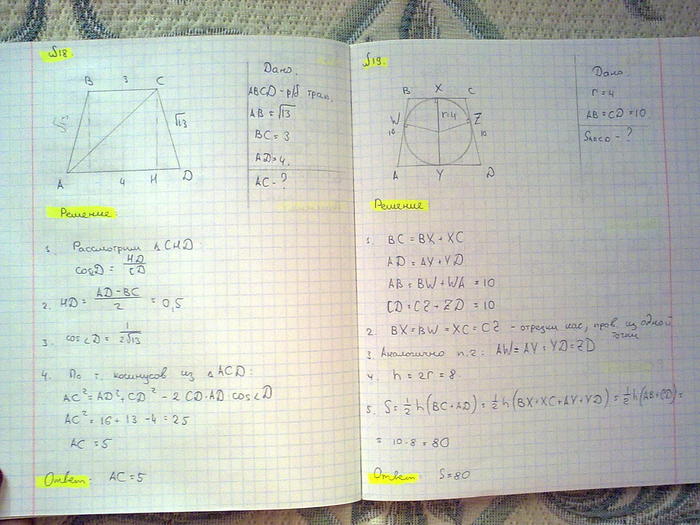 №18.
B 3 C
√13 √13
A 4 H D
Дано:
ABCD - р/б трап.
AB = √13
BC = 3
AD = 4.
AC - ?
Решение:
1. Рассмотрим △CHD:
cos∠D = HD/CD
2. HD = (AD-BC)/2 = 0,5
3. cos∠D = 1/(2√13)
4. По т. косинусов из △ACD:
AC² = AD² + CD² - 2 CD·AD·cos∠D
AC² = 16 + 13 - 4 = 25
AC = 5
Ответ: AC = 5
№19.
B X C
W r=4 Z
10 10
A Y D
Дано:
r = 4
AB = CD = 10
SABCD - ?
Решение
1. BC = BX + XC
AD = AY + YD
AB = BW + WA = 10
CD = CZ + ZD = 10
2. BX = BW = XC = CZ - отрезки кас, пров. из одной
точки
3. Аналогично п.2: AW = AY = YD = ZD
4. h = 2r = 8.
5. S = ½h(BC+AD) = ½h(BX+XC+AY+YD) = ½h(AB+CD) =
= 10·8 = 80
Ответ: S = 80